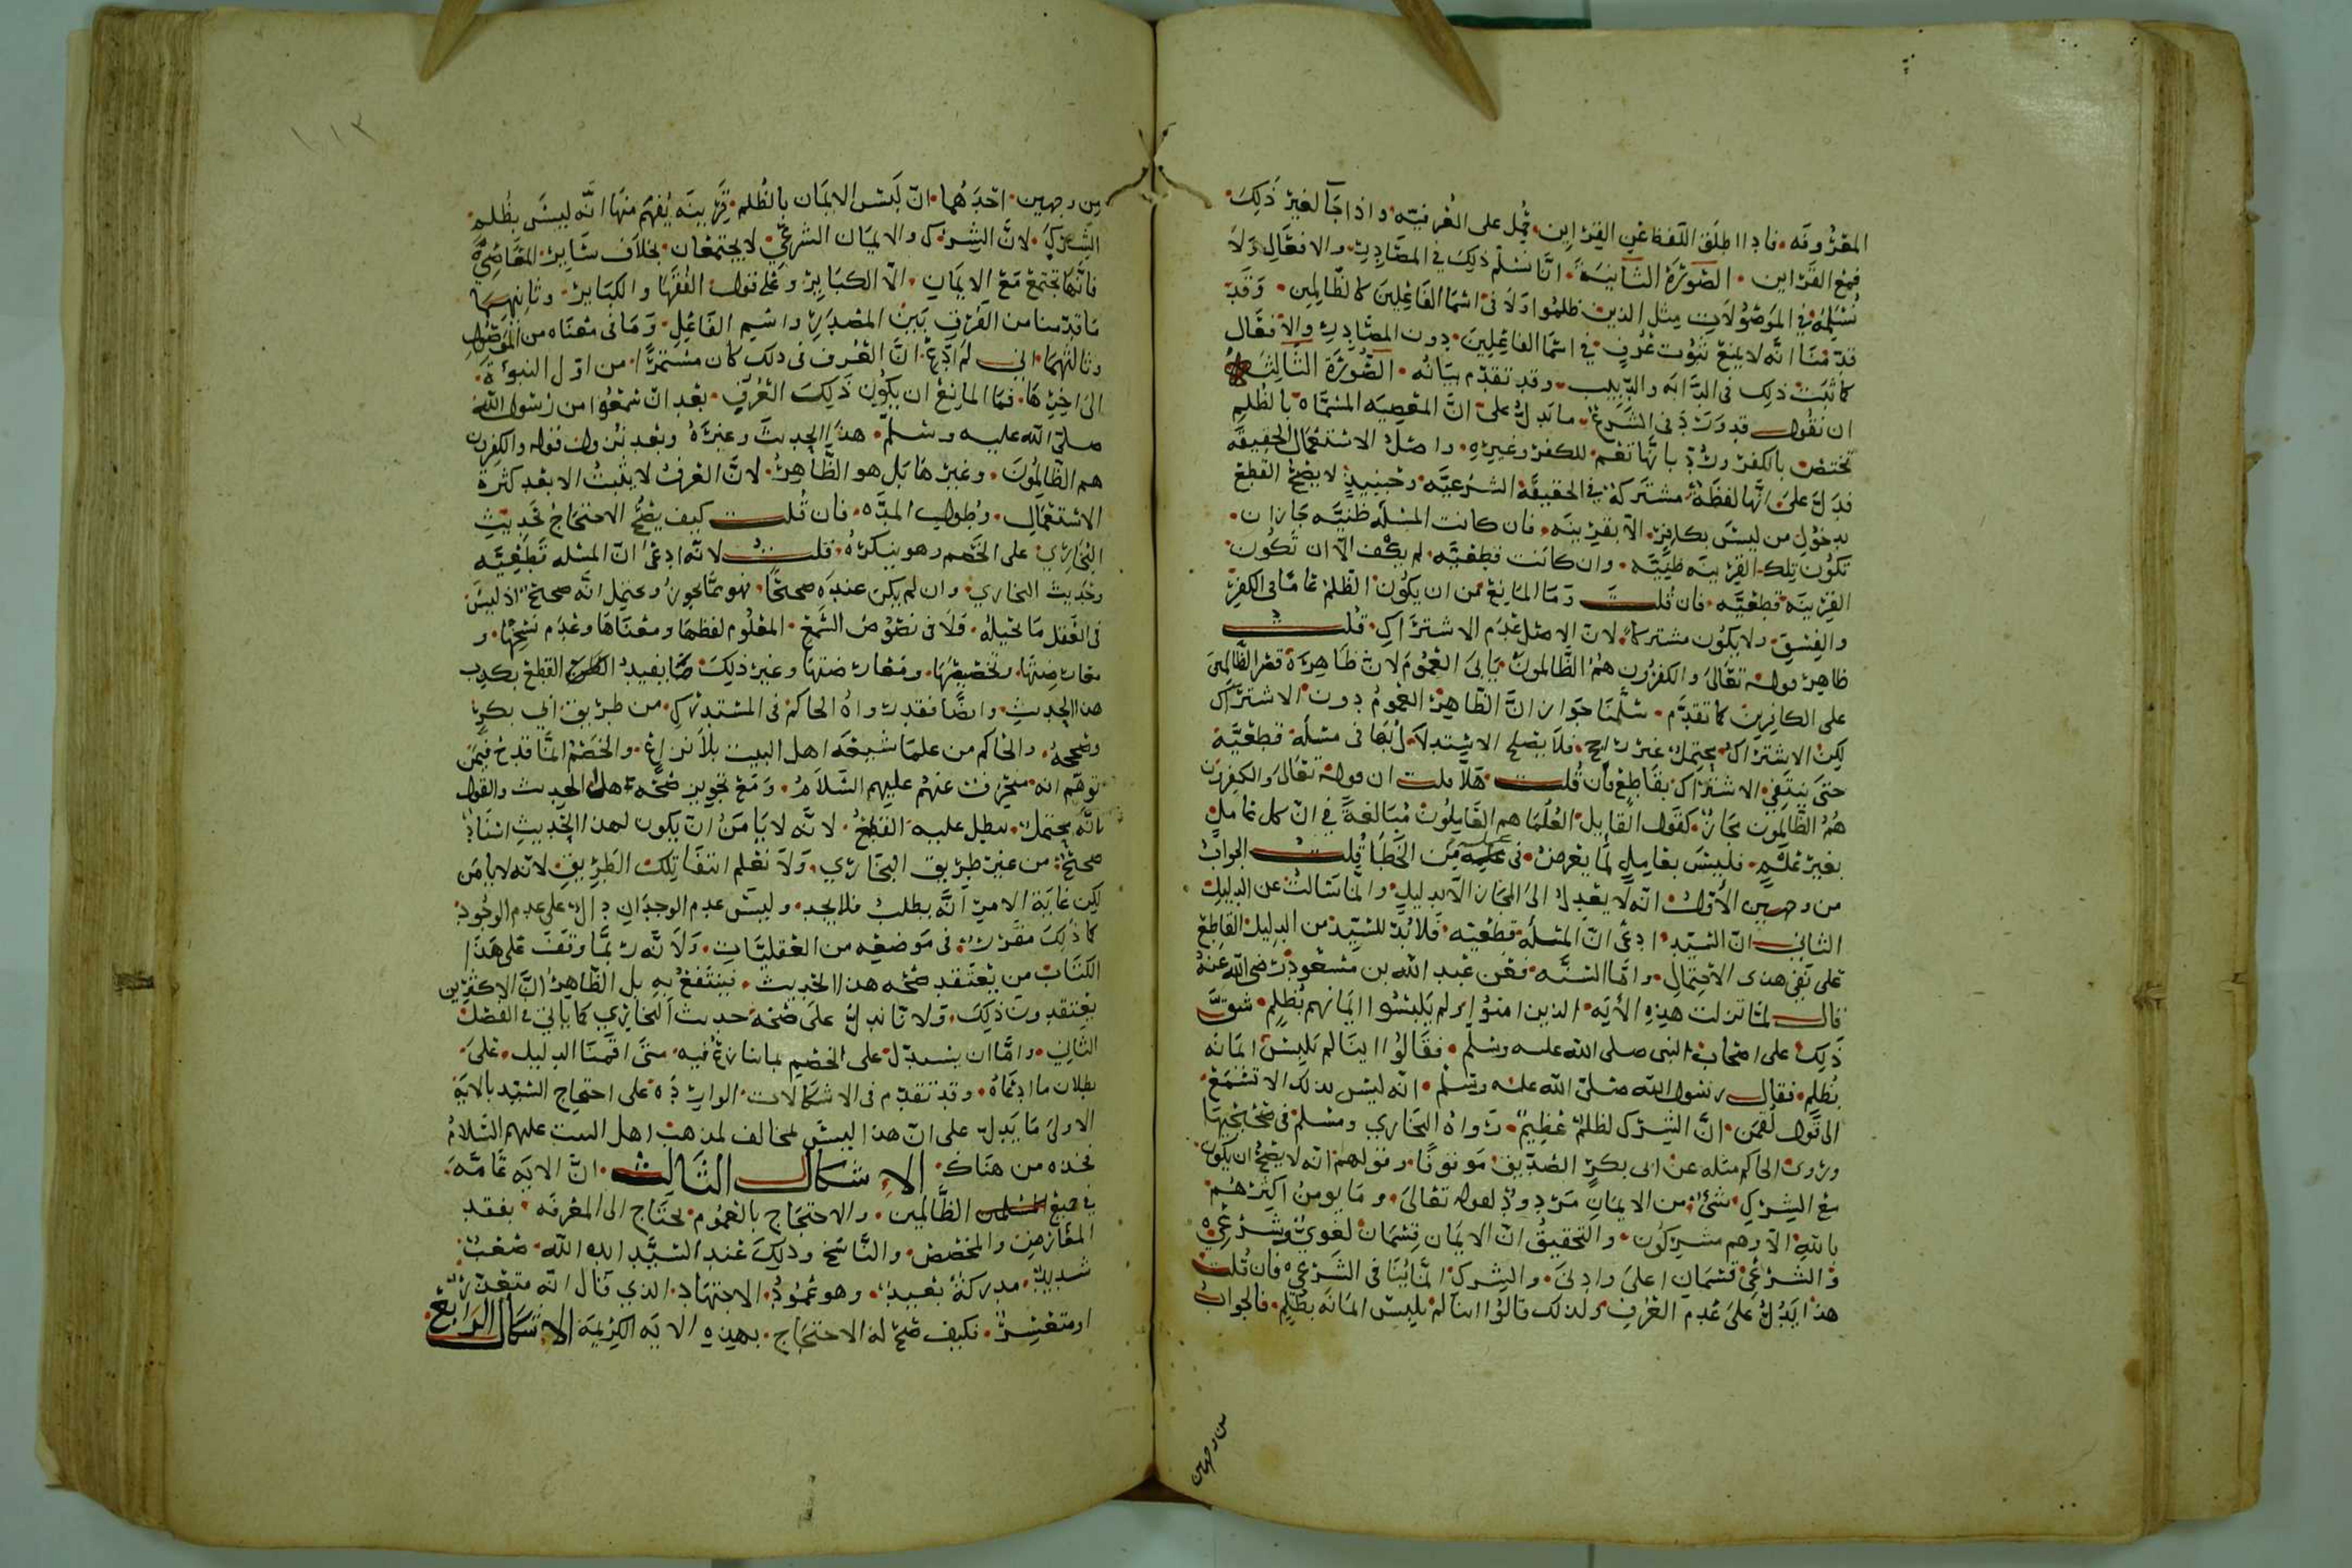 المعروفه فاذا اطلق اللفظ عن القراين حمل على العرفيه واذا جا لغير ذلك
فمع القراين الصورة الثانية انا نسلم ذلك في المصادر والافعال ولا
نسلمه في الموصولات مثل الذين ظلموا ولا في اسما الفاعلين كالظالمين وقد
قدمنا انه لا يمنع ثبوت عرف في اسما الفاعلين دون المصادر والافعال
كما ثبت ذلك في الدابه والدبيب وقد تقدم بيانه الصورة الثالثه
ان نقول قد ورد في الشرع ما يدل على ان المعصيه المسماه بالظلم
تختص بالكفر ورد بانها تعم للكفر وغيره واصل الاستعمال الحقيقه
فدل على انها لفظة مشتركة في الحقيقة الشرعيه وحينيذ لا يصح القطع
بدخول من ليس بكافر الا بقرينه فان كانت المسله ظنيه جاز ان
تكون تلك القرينه ظنيه وان كانت قطعيه لم يكف الا ان تكون
القرينه قطعيه فان قلت وما المانع من ان يكون الظلم عاما في الكفر
والفسق ولا يكون مشتركا لان الاصل عدم الاشتراك قلت
ظاهر قوله تعالى والكفرون هم الظالمون يابى العموم لان ظاهره قصر الظالمين
على الكافرين كما تقدم سلمنا جواز ان الظاهر العموم دون الاشتراك
لكن الاشتراك محتمل غير راجح فلا يصلح الاستدلال بها في مسلة قطعية
حتى ينتفي الاشتراك بقاطع فان قلت هلا قلت ان قوله تعالى والكفرون
هم الظالمون مجاز كقول القايل العلما هم العاملون مبالغة في ان كل عامل
بغير علم فليس بعامل لما يعرض في عمله من الخطا قلت الجواب
من وجهين الاول انه لا يعدل الى المجاز الا بدليل وانما سالت عن الدليل
الثاني ان السيد ادعى ان المسلة قطعيه فلا بد للسيد من الدليل القاطع
على نفي هذا الاحتمال واما السنه فعن عبد الله بن مسعود رضي الله عنه
قال لما نزلت هذه الاية الذين امنوا ولم يلبسوا ايمانهم بظلم شق
ذلك على اصحاب النبي صلى الله عليه وسلم فقالوا اينا لم يلبس ايمانه
بظلم فقال رسول الله صلى الله عليه وسلم انه ليس بذلك الا تسمع
الى قول لقمن ان الشرك لظلم عظيم رواه البخاري ومسلم في صحيحيهما
وروى الحاكم مثله عن ابي بكر الصديق موقوفا وقولهم انه لا يصح ان يكون
مع الشرك شي من الايمان مردود لقوله تعالى وما يومن اكثرهم
بالله الا وهم مشركون والتحقيق ان الايمان قسمان لغوي وشرعي
والشرعي قسمان اعلى وادنى والشرك انما ينافي الشرعي فان قلت
هذا يدل على عدم العرف ولذلك قالوا اينا لم يلبس ايمانه بظلم فالجواب
من وجهين
١١٣
من وجهين احدهما ان لبس الايمان بالظلم قرينه يفهم منها انه ليس بظلم
الشرك لان الشرك والايمان الشرعي لا يجتمعان بخلاف ساير المعاصي
فانها تجتمع مع الايمان الا الكباير وعلى قول الفقها والكباير وثانيهما
ما قدمنا من الفرق بين المصدر واسم الفاعل وما في معناه من الموصول
وثالثهما اني لم ادع ان العرف في ذلك كان مستمرا من اول النبوة
الى اخرها فما المانع ان يكون ذلك العرف بعد ان سمعوا من رسول الله
صلى الله عليه وسلم هذا الحديث وغيره وبعد نزول قوله والكفرون
هم الظالمون وغيرها بل هو الظاهر لان العرف لا يثبت الا بعد كثرة
الاستعمال وطول المده فان قلت كيف يصح الاحتجاج بحديث
البخاري على الخصم وهو ينكره قلت لانه ادعى ان المسله قطعيه
وحديث البخاري وان لم يكن عنده صحيحا فهو مما يجوز ويحتمل انه صحيح اذ ليس
في العقل ما يحيله ولا في نصوص السمع المعلوم لفظها ومعناها وعدم نسخها و
معارضتها وتخصيصها ومعارضتها وغير ذلك مما يفيد القطع بكذب
هذا الحديث وايضا فقد رواه الحاكم في المستدرك من طريق ابي بكر
وصححه والحاكم من علما شيعه اهل البيت بلا نزاع والخصم انما قدح فيمن
توهم انه منحرف عنهم عليهم السلام ومع تجويز صحه هذا الحديث والقول
بانه يحتمل يبطل عليه القطع لانه لا يامن ان يكون لهذا الحديث اسناد
صحيح من غير طريق البخاري ولا نعلم انتفا تلك الطريق لانه لا يامن
لكن غاية الامر انه يطلب فلا يجد وليس عدم الوجدان دال على عدم الوجود
كما ذلك مقرر في موضعه من العقليات ولانه ربما وقف على هذا
الكتاب من يعتقد صحه هذا الحديث فينتفع به بل الظاهر ان الاكثرين
يعتقدون ذلك ولانا ندل على صحة حديث البخاري كما ياتي في الفصل
الثاني واما ان يستدل على الخصم بما ينازع فيه متى اقمنا الدليل على
بطلان ما ادعاه وقد تقدم في الاشكالات الوارده على احتجاج السيد بالاية
الاولى ما يدل على ان هذا ليس بمخالف لمذهب اهل البيت عليهم السلام
فخذه من هناك الاشكال الثالث ان الايه عامه
في جميع المسلمين الظالمين والاحتجاج بالعموم يحتاج الى المعرفه بفقد
المعارض والمخصص والناسخ وذلك عند السيد ايده الله صعب
شديد مدركه بعيد وهو عمود الاجتهاد الذي قال انه متعذر
او متعسر فكيف صح له الاحتجاج بهذه الايه الكريمة الاشكال الرابع